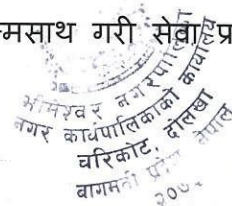 मसाथ गरी सेवा प्र
भीमेश्वर नगरपालिका
नगर कार्यपालिकाको कार्यालय
चरिकोट, दोलखा
बागमती प्रदेश नेपाल